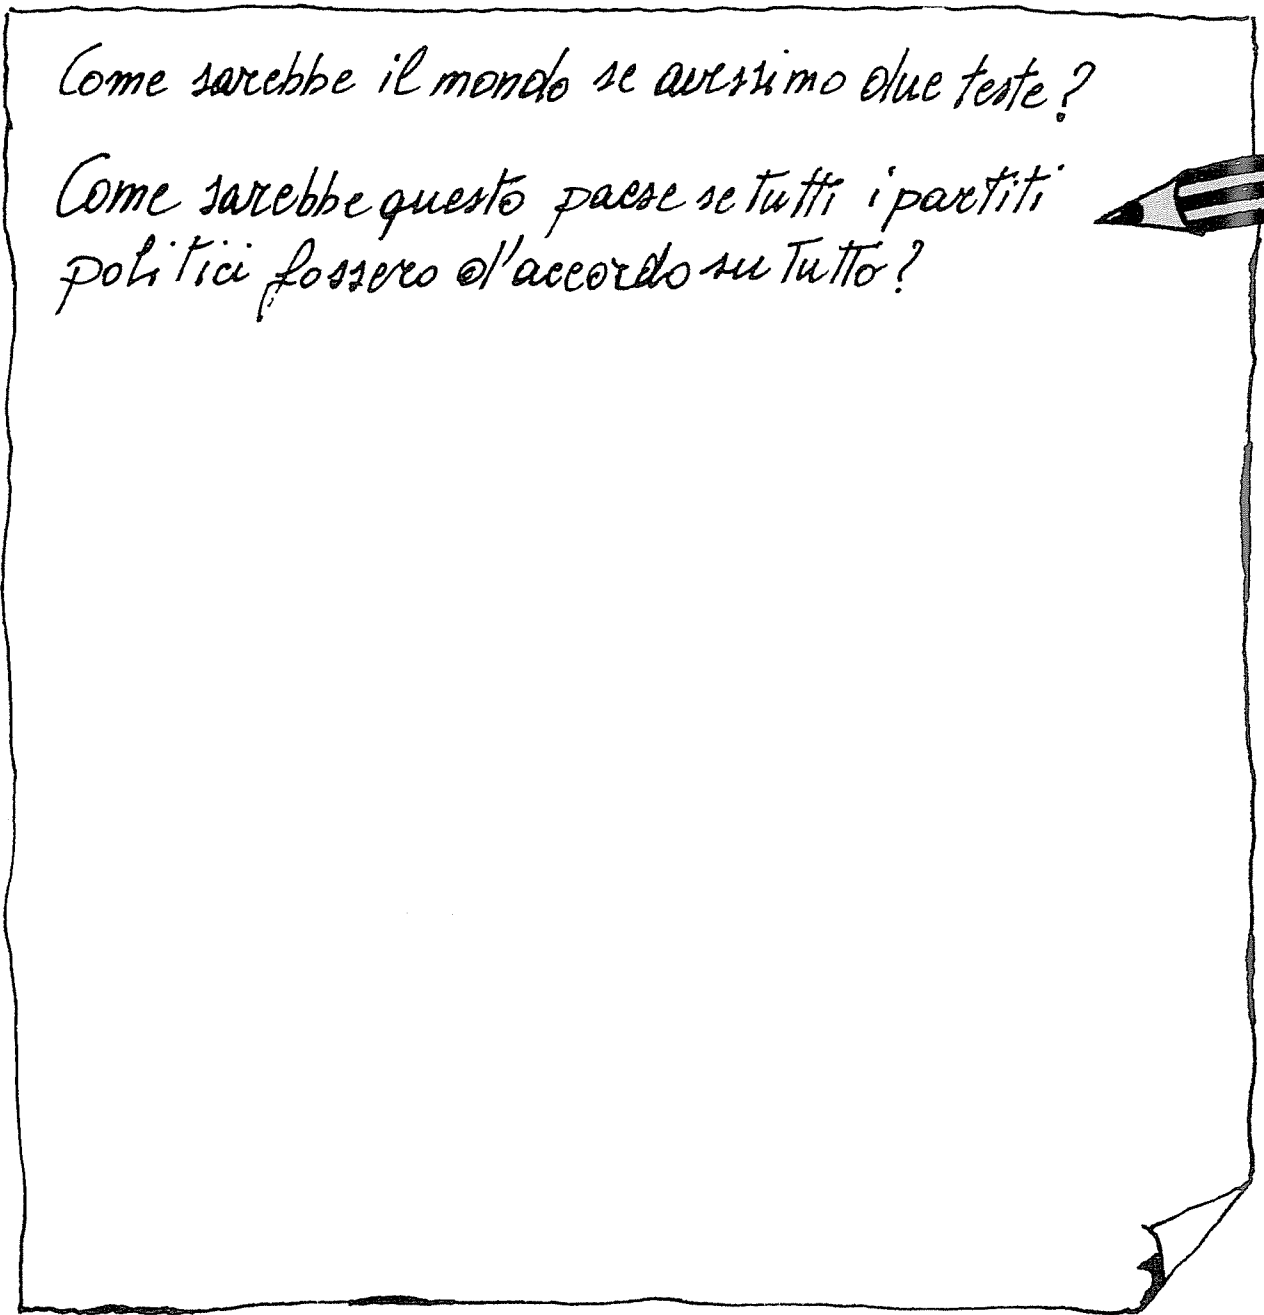 Come sarebbe il mondo se avessimo due teste?
Come sarebbe questo paese se tutti i partiti
politici fossero d'accordo su tutto?